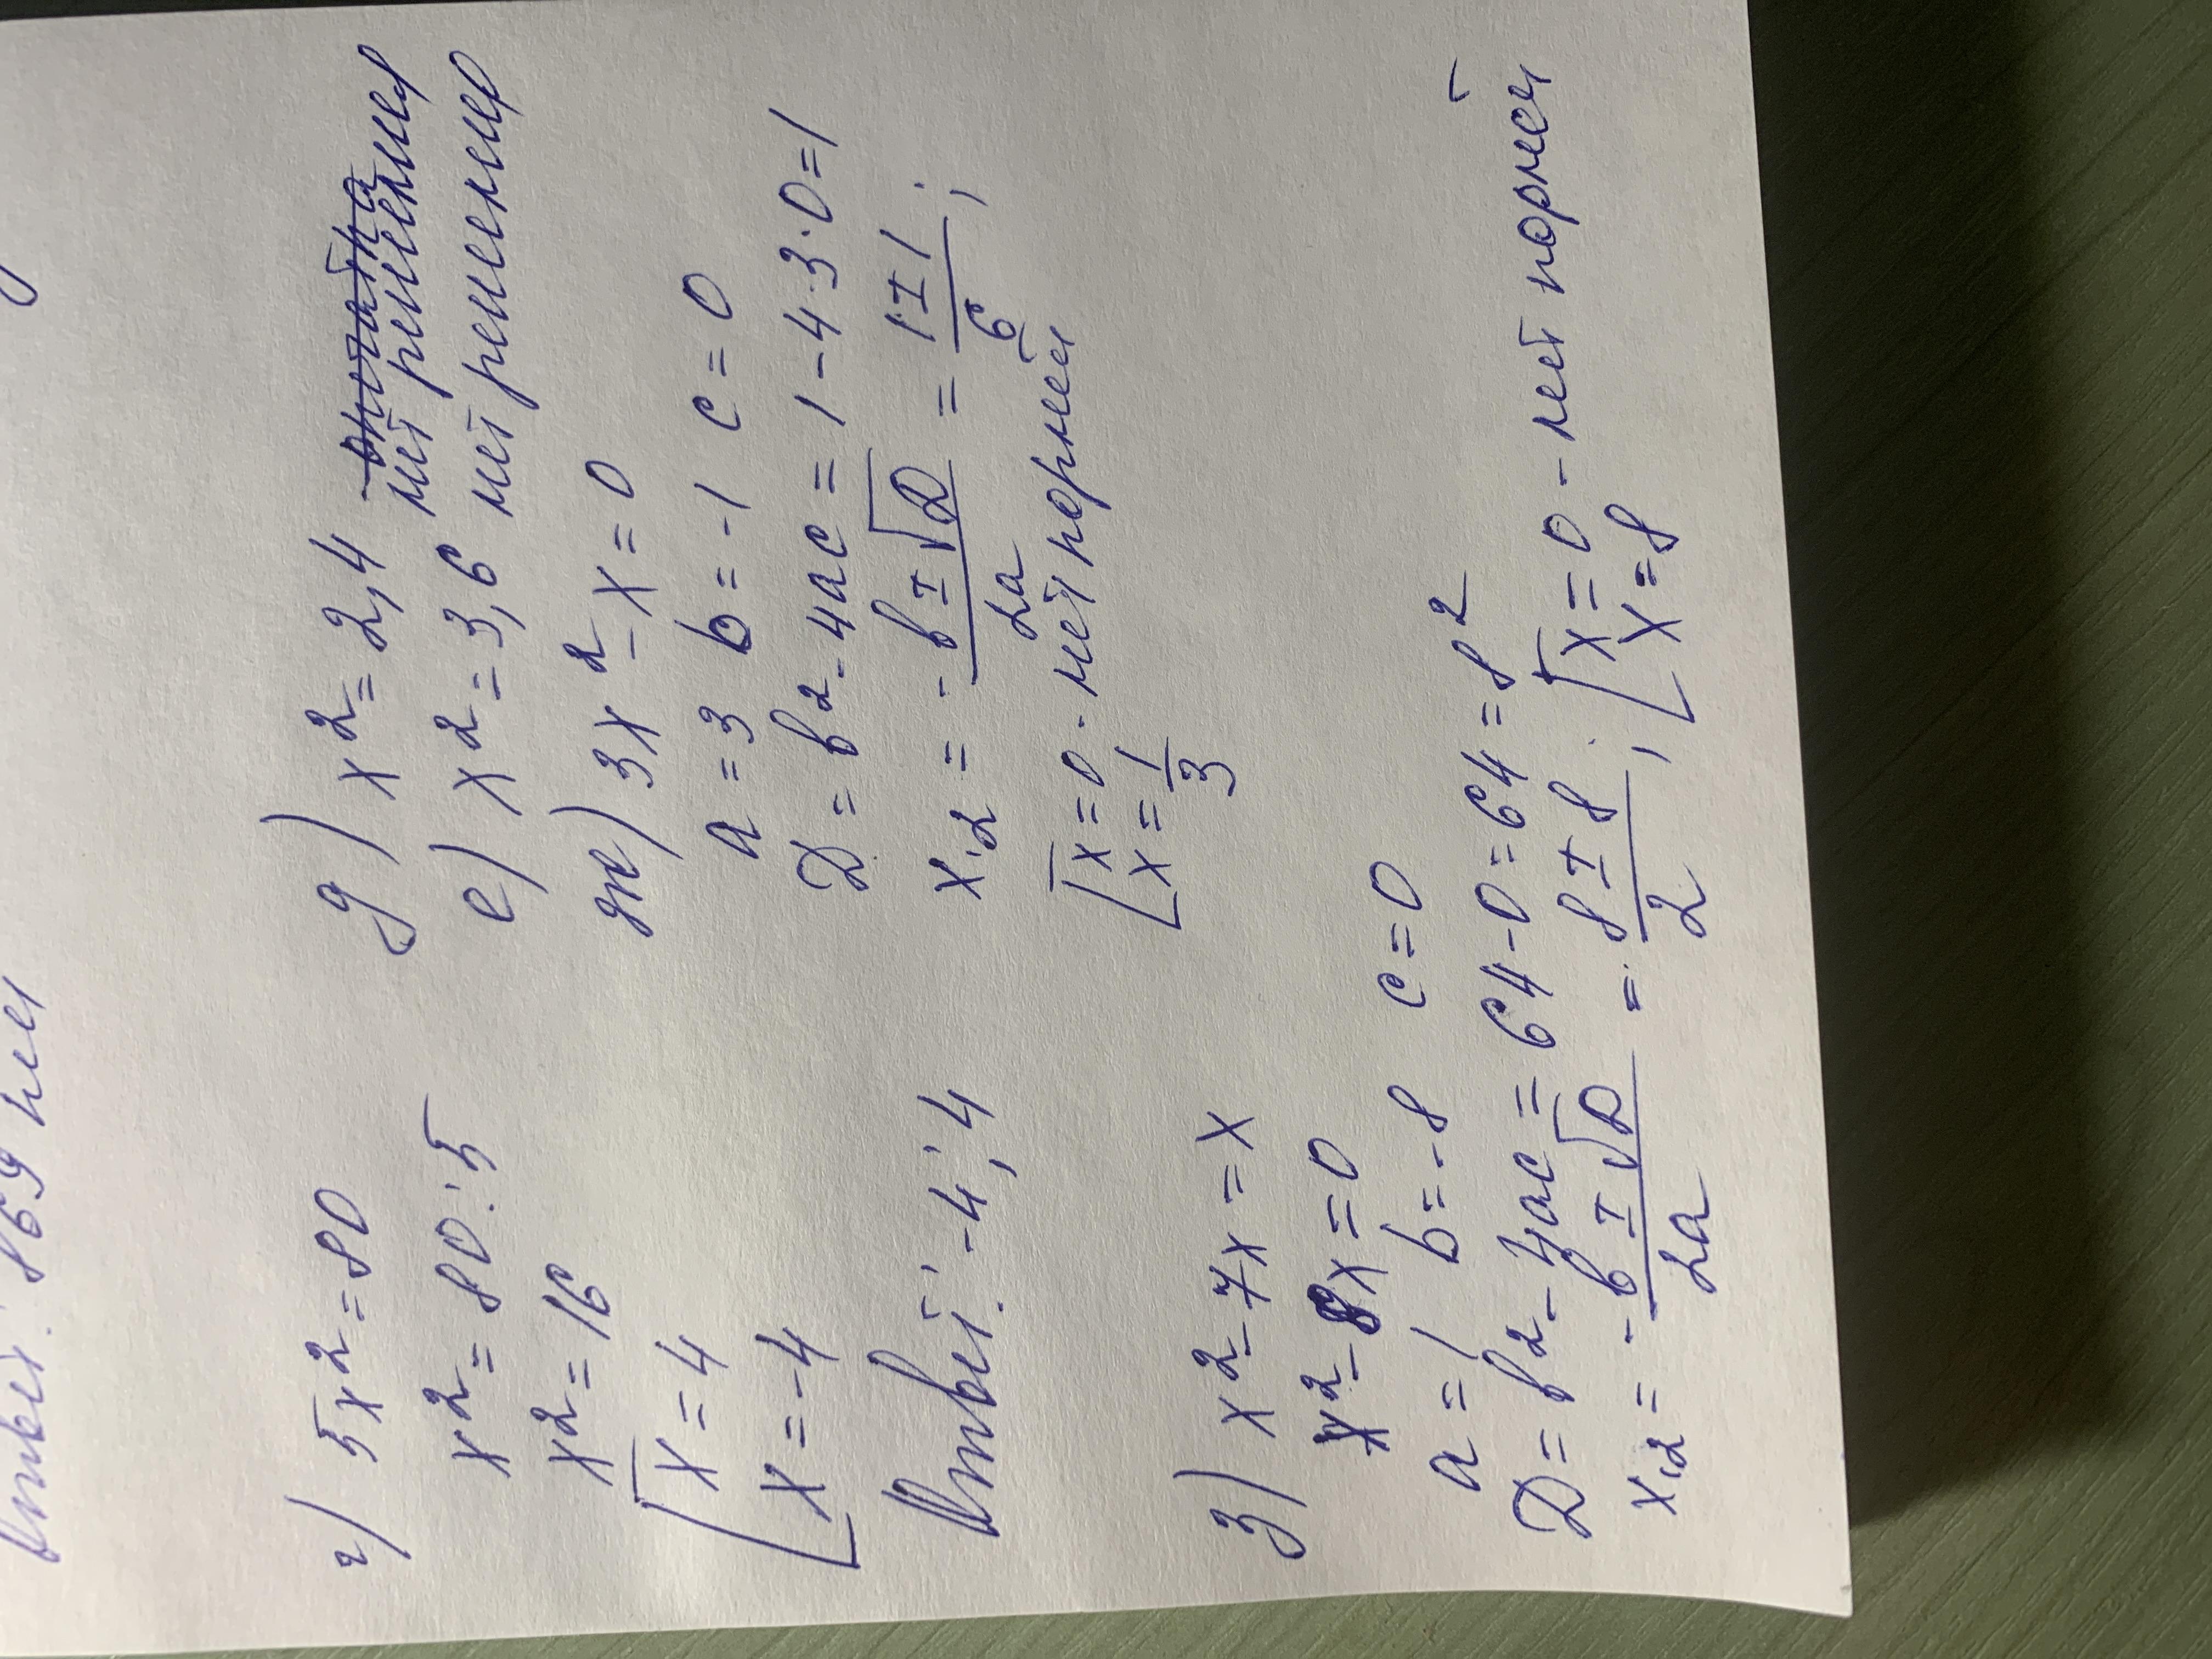 Ответ: 869 км
г) 5x² = 80
x² = 80 : 5
x² = 16
[x = 4
[x = -4
Ответ: -4; 4
д) x² = 2,4 нет решения
е) x² = 3,6 нет решения
ж) 3x² - x = 0
a = 3 b = -1 c = 0
D = b² - 4ac = 1 - 4·3·0 = 1
x₁,₂ = (-b ± √D)/2a = (1 ± 1)/6;
[x = 0 - нет корней
[x = 1/3
з) x² - 7x = x
x² - 8x = 0
a = 1 b = -8 c = 0
D = b² - 4ac = 64 - 0 = 64 = 8²
x₁,₂ = (-b ± √D)/2a = (8 ± 8)/2; [x = 0 - нет корней
[x = 8